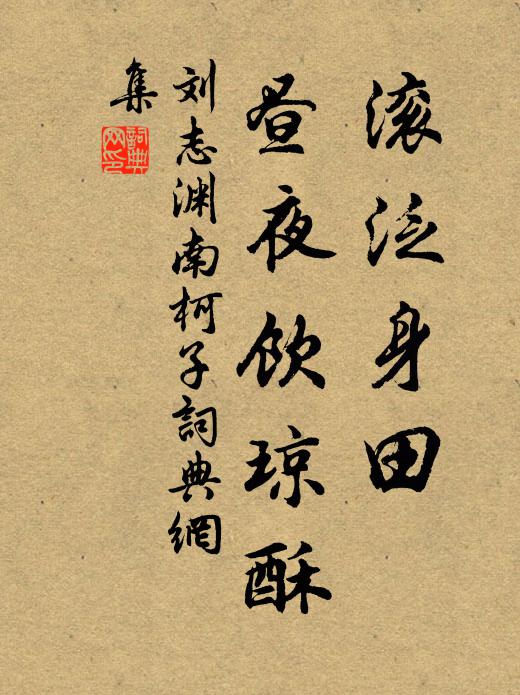 滚泛身田
昼夜饮琼酥
刘志渊南柯子詞典網
集
詞典网印